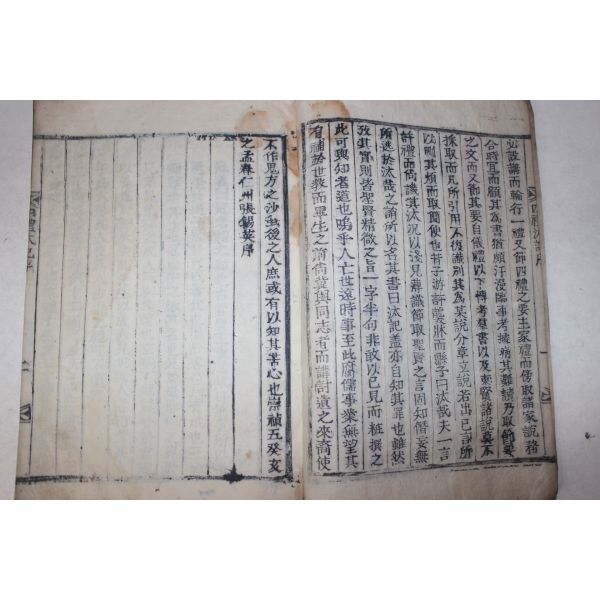 必設講而輪行一禮又節四禮之要主家禮而傍取諸家說務
合時宜而顧其為書猶頗汗漫臨事考據稍其難讀乃取節要
之文而又節其要自儀禮以下博考羣書以及東賢諸說莫不
採取而凡所引用不復識別其為某說分章立說若出己言所
以刪其煩而取簡便也昔子游許襲牀而縣子曰汰哉夫一言
許禮而尚譏其汰況以淺見薄識節取聖賢之言固知僭妄無
所逃於汰哉之誚所以名其書曰汰記盖亦自知其罪也雖然
攷其實則皆聖賢精微之旨一字半句非敢以己見而粧撰之
此可與知者道也嗚乎人亡世遠時事至此腐儒事業無望其
有補於世教而畢生之
尚冀與同志者而講討遺之來裔使
不作冥方之沙
後之人庶或有以知其苦心也崇禎五癸亥
之孟春仁州張錫英序
四禮汰記序